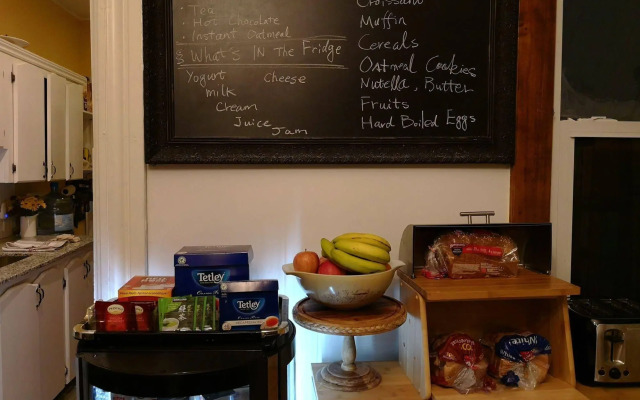 · Tea
· Hot Chocolate
· Instant Oatmeal
What's IN the Fridge
Yogurt
Cheese
milk
Cream
Juice
Jam
Croissant
Muffin
Cereals
Oatmeal Cookies
Nutella, Butter
Fruits
Hard Boiled Eggs
Tetley
Tetley